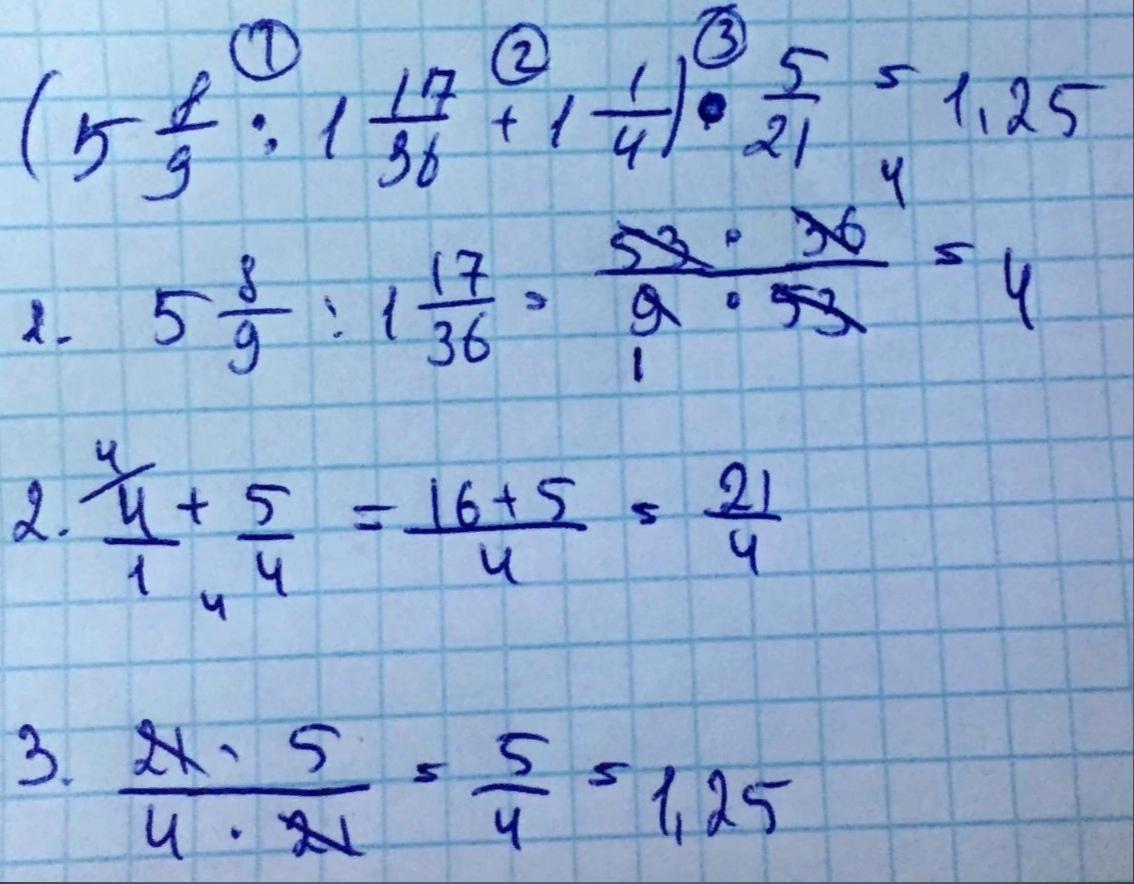 ① ② ③
(5 8/9 : 1 17/36 + 1 1/4) · 5/21 = 1,25
1. 5 8/9 : 1 17/36 = 53 · 36 4 / 9 · 53 1 = 4
2. 4/ 4/1 + 5/4 4 = 16+5/4 = 21/4
3. 21 · 5 / 4 · 21 = 5/4 = 1,25